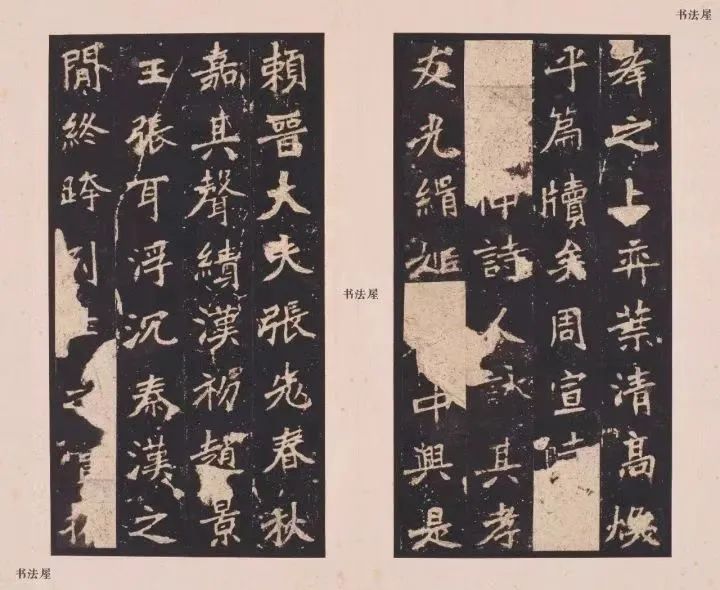 书法屋
峯之上弈葉清高煥
乎篇牘矣周宣時
仲詩人詠其孝
友光緝姬中興是
书法屋
賴晉大夫張老春秋
嘉其聲績漢初趙景
王張耳浮沉秦漢之
閒終跨列之賞
书法屋